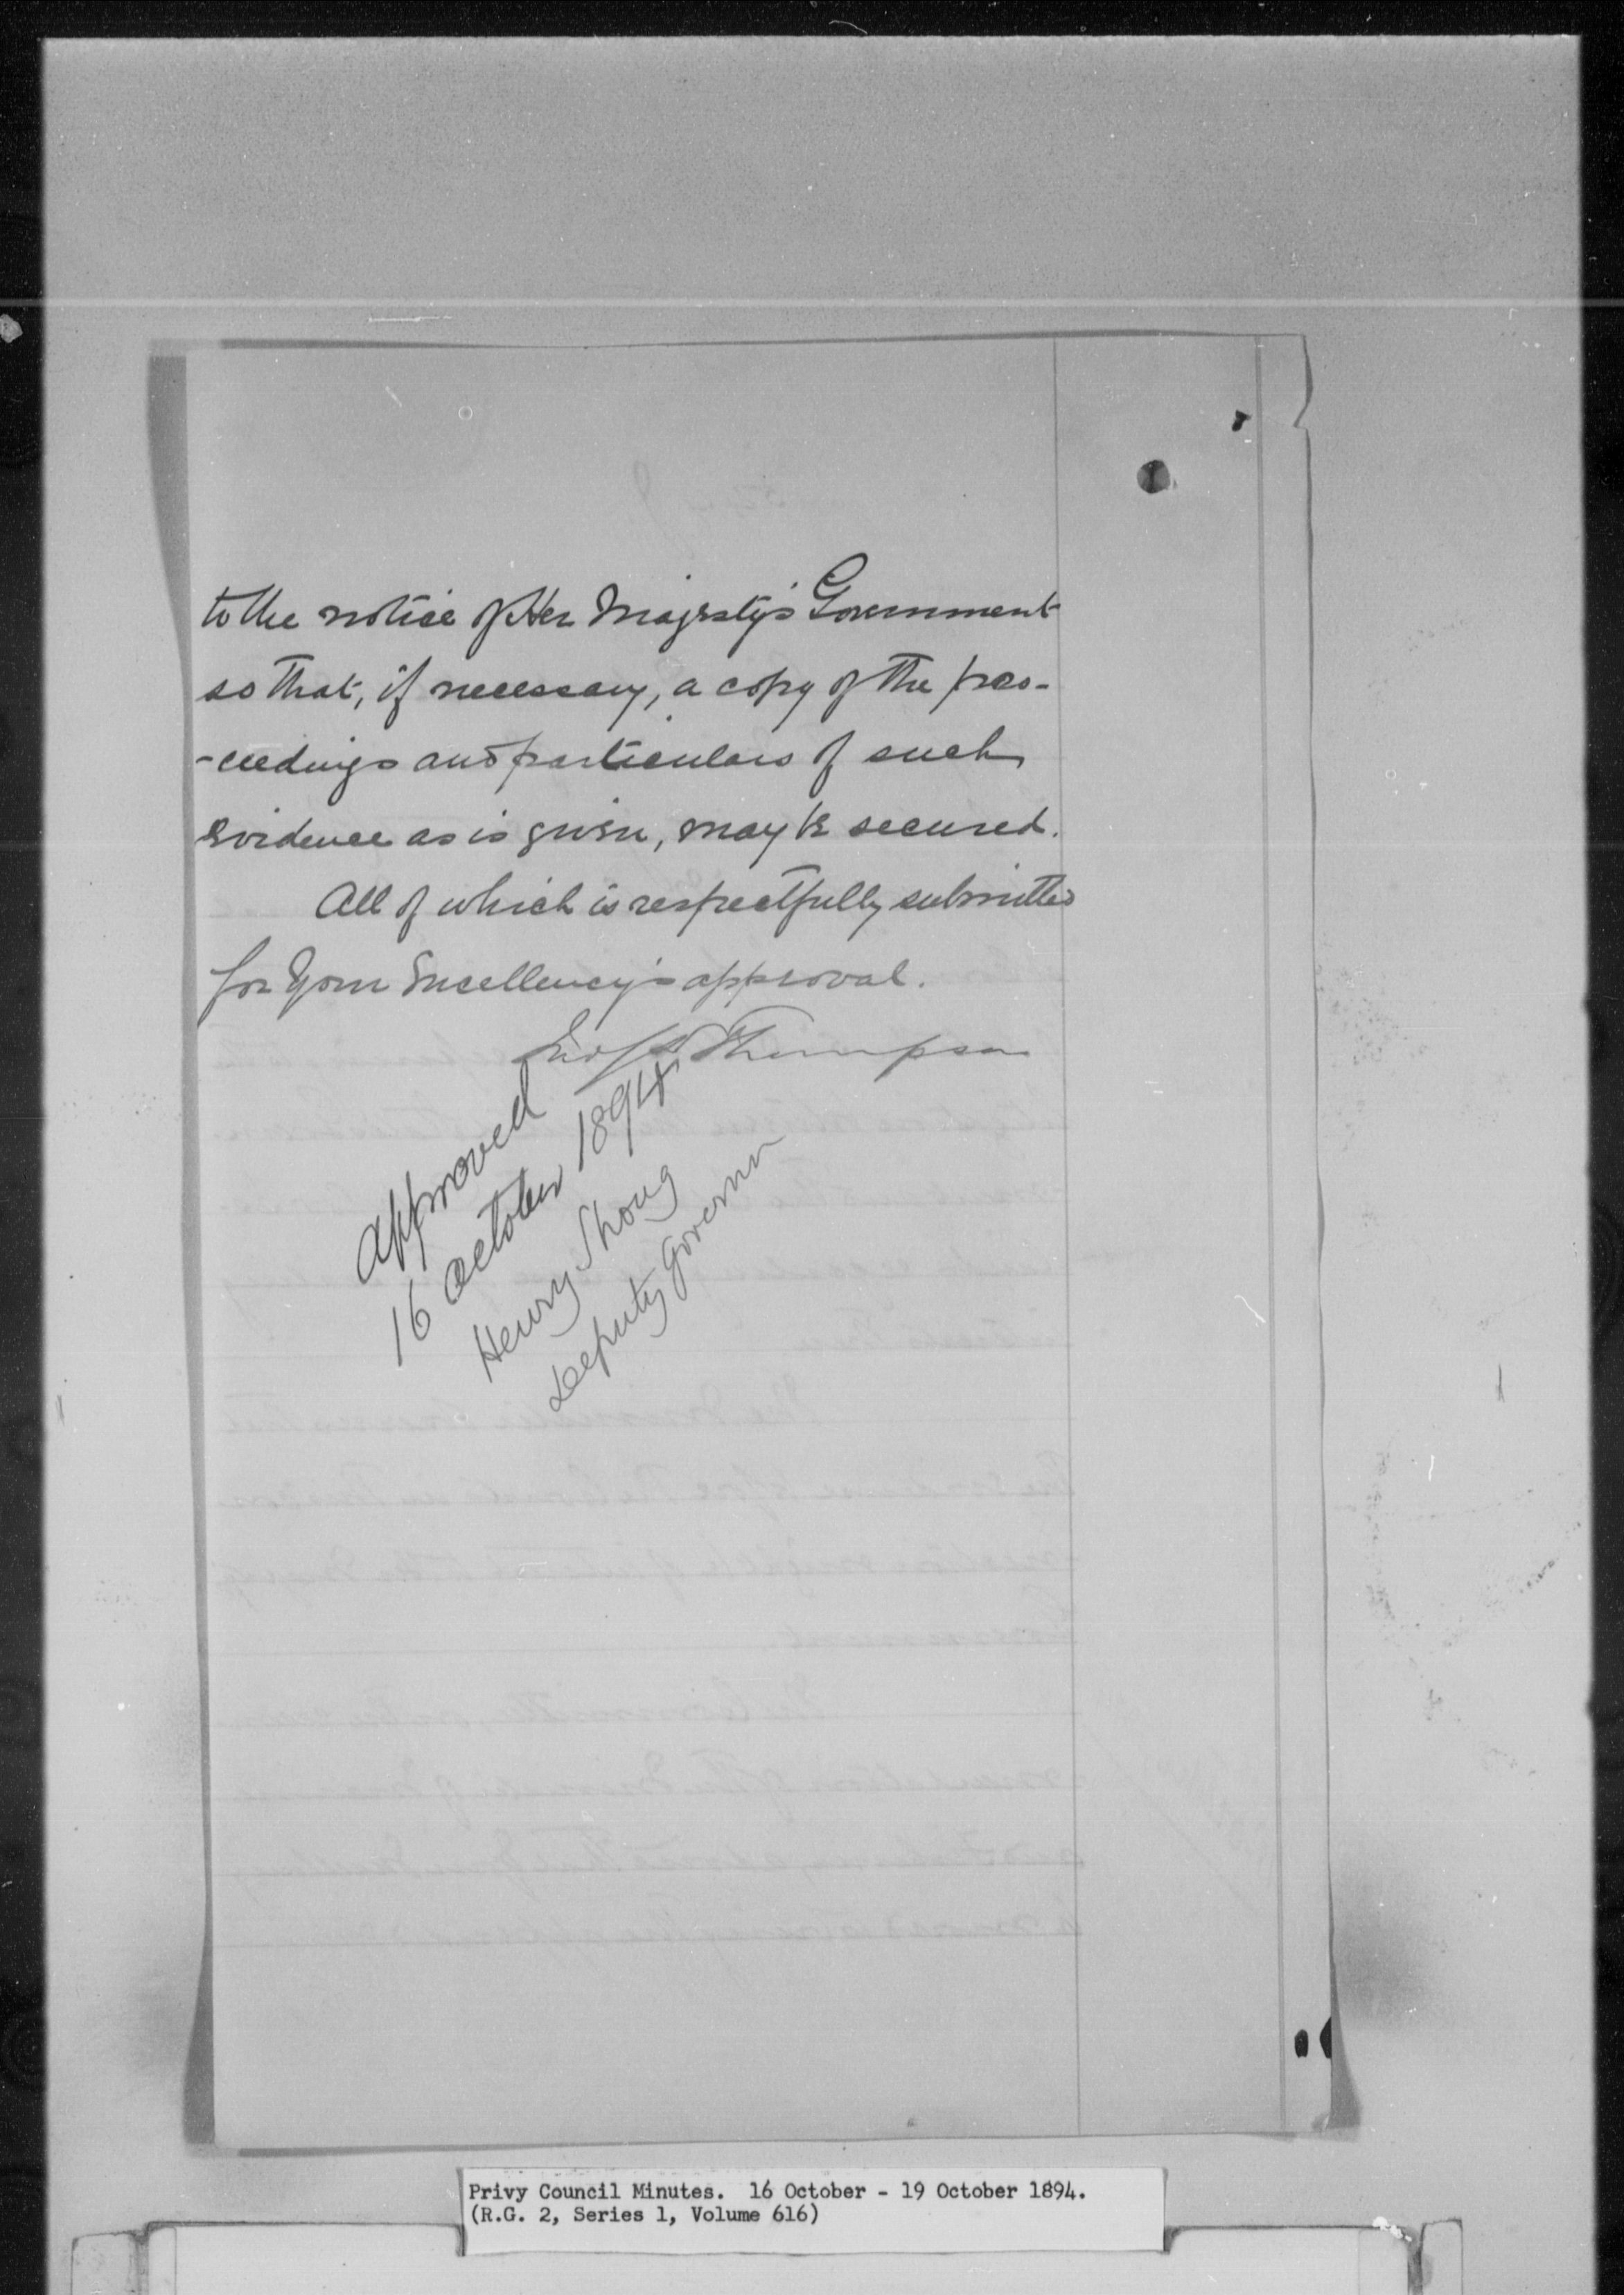 to the notice of Her Majesty's Government
so that, if necessary, a copy of the pro-
-ceedings and particulars of such
evidence as is given, may be secured.
All of which is respectfully submitted
for Your Excellency's approval.
Jno S D Thompson
Approved
16 October 1894
Henry Strong
Deputy Governor
Privy Council Minutes. 16 October - 19 October 1894.
(R.G. 2, Series 1, Volume 616)